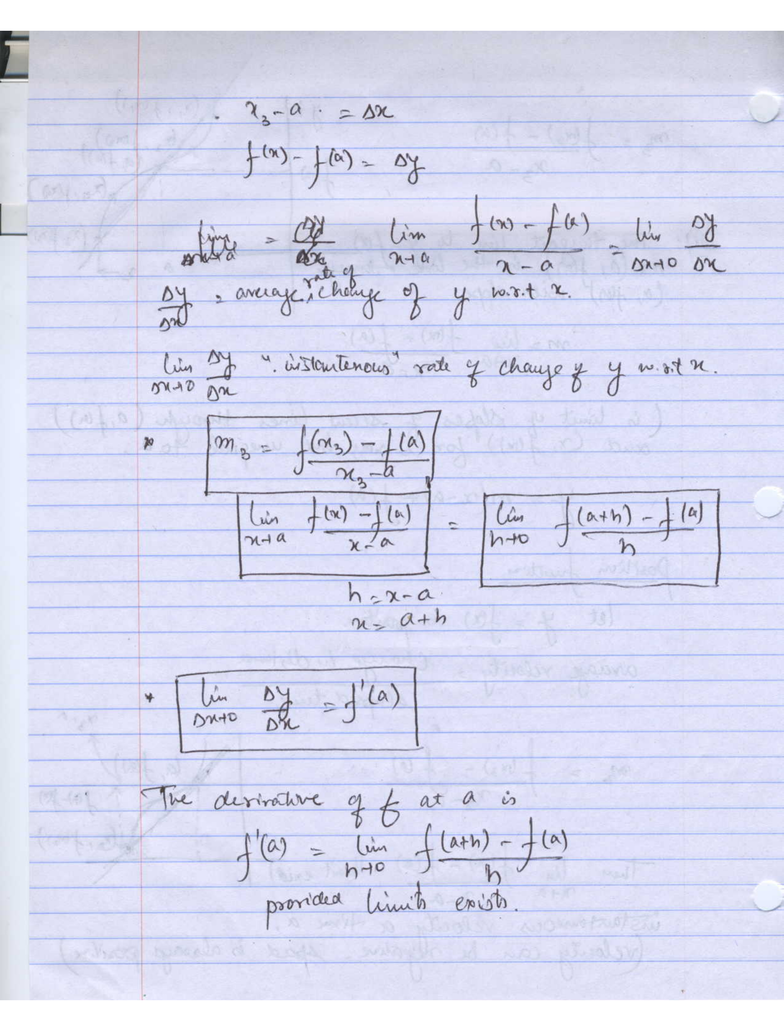 . x₃ - a . = Δx
f(x) - f(a) = Δy
= Δy/Δx lim x→a (f(x) - f(a))/(x - a) = lim Δx→0 Δy/Δx
Δy/Δx = average rate of change of y w.r.t x.
lim Δx→0 Δy/Δx ". instantenous" rate of change of y w.r.t x.
* m₃ = (f(x₃) - f(a))/(x₃ - a)
lim x→a (f(x) - f(a))/(x - a) = lim h→0 (f(a+h) - f(a))/h
h = x - a.
x = a + h
* lim Δx→0 Δy/Δx = f'(a)
The derivative of f at a is
f'(a) = lim h→0 (f(a+h) - f(a))/h
provided limits exists.